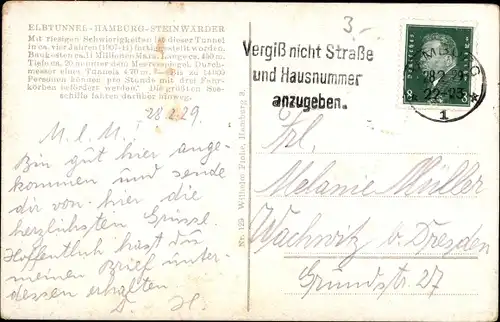 ELBTUNNEL-HAMBURG-STEINWÄRDER
Mit riesigen Schwierigkeiten ist dieser Tunnel
in ca. vier Jahren (1907-11) fertiggestellt worden,
Baukosten rd. 11 Millionen Mark. Länge ca. 450 m,
Tiefe ca. 20 m unter dem Meeresspiegel. Durch-
messer eines Tunnels 4,70 m. Bis zu
Personen können pro Stunde mit drei Fahr-
körben befördert werden. Die größten See-
schiffe fahren darüber hinweg.
28.2.29.
M. l. M.!
Bin gut hier ange-
kommen und sende
dir von hier die
herzlichsten Grüsse.
Hoffentlich hast du
meinen Brief unter-
dessen erhalten.
D. H.
Nr. 129 Wilhelm Finke, Hamburg 3.
3.-
Vergiß nicht Straße
und Hausnummer
anzugeben.
28.2.29
22-23
* 1 *
8 8
Frl.
Melanie Müller
Wachwitz b. Dresden
Grundstr. 27